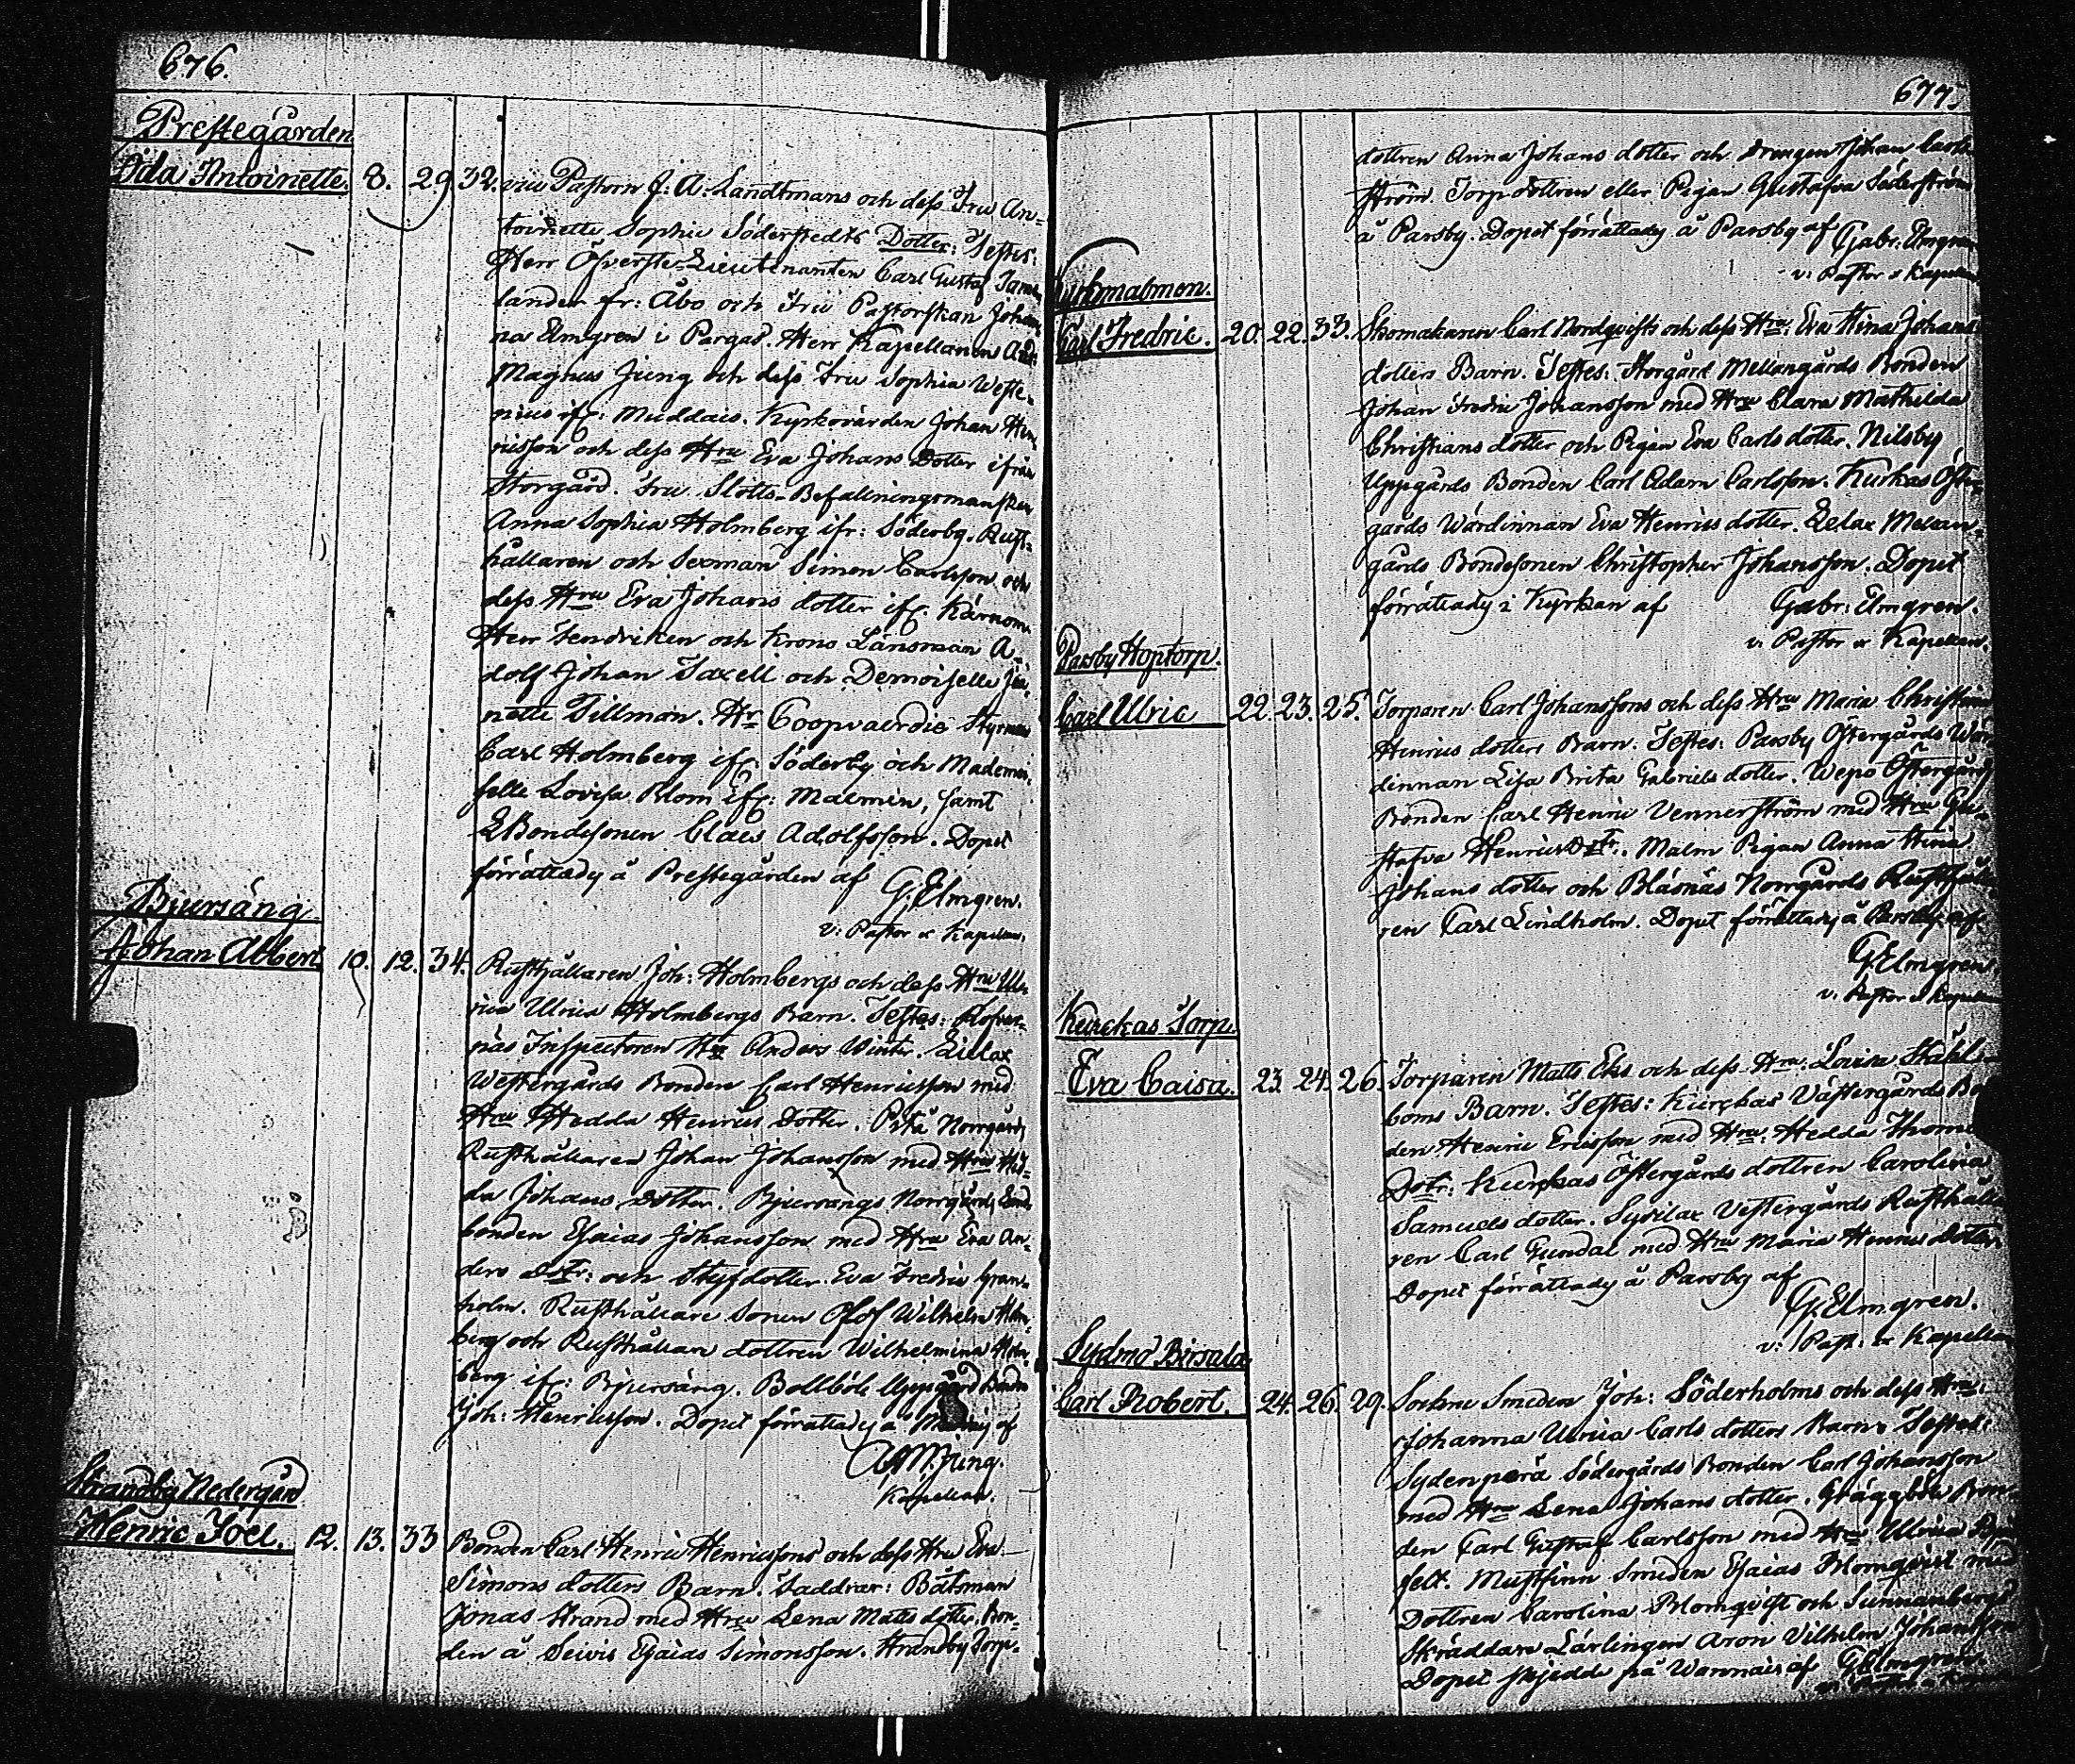 676.
Prestegården
Ida Antoinette. 8. 29. 32. vice Pastorn J. A. Landtmans och dess Fru An-
toinette Sophie Söderstedts Dotter: Testes:
Herr Öfverste-Lieutenanten Carl Gustaf
lander fr: Åbo och Fru Pastorskan Johan-
na Elmgren i Pargas. Herr Kapellanen And:
Magnus Jung och dess Fru Sophia Weste-
nius ifr: Muddais. Kyrkovärden Johan Hen-
ricsson och dess Hru Eva Johans Dotter ifrån
Storgård. Fru Slotts-Befallningsmanskan
Anna Sophia Holmberg ifr: Söderby. Rust-
hållaren och Sexman Simon Carlsson och
dess Hru Eva Johans dotter ifr. Kårnom.
Herr Fendriken och Krono Länsman A-
dolf Johan Taxell och Demoiselle
nette Tillman. Hr Coopvaerdie Styrman
Carl Holmberg ifr. Söderby och Mademoi-
selle Lovisa Blom ifr: Malmen, samt
Bondesonen Claes Adolfsson. Dopet
förrättady å Prestegården af G. Elmgren.
v: Pastor & Kapellan.
Bjursäng
Johan Albert 10. 12. 34. Rusthållaren Joh: Holmbergs och dess Hru Ul-
rica Ulrica Holmbergs Barn. Testes: Kofver-
näs Inspectoren Hr Anders Winter. Lielax
Westergårds Bonden Carl Henricsson med
Hru Hedda Henrics Dotter. Norrgårds
Rusthållaren Johan Johansson med Hru Hed-
da Johans dotter. Bjursängs Norrgårds
bonden Esaias Johansson med Hru Eva An-
ders Dotr: och Styfdotter Eva Fredric Gran-
holm. Rusthållare Sonen Olof Wilhelm Holm-
berg och Rusthållare dottren Wilhelmina Holm-
berg ifr: Bjursäng. Bollböle Uppgård Bonden
Joh: Henricsson. Dopet förrättady å af
A M. Jung.
Kapellan.
Strandby Nedergård
Henric Joel. 12. 13. 33 Bonden Carl Henric Henricssons och dess Hru Eva
Simons dotters Barn. Faddrar: Båtsman
Jonas Strand med Hru Lena Matts dotter, Bon-
den å Seivis Esaias Simonsson. Strandby Torp-
677.
dottren Anna Johans dotter och drengen Johan Carl
ström. Torpdottren eller Pigan Gustafva Söderström
å Parsby. Dopet förrättady å Parsby af Gabr: Elmgren
v: Pastor & Kapellan
Kyrkmalmen.
Carl Fredric. 20. 22. 33. Skomakaren Carl Nordqvists och dess Hru: Eva Stina Johans
dotters Barn. Testes: Storgård Mellangårds Bonden
Johan Fredric Johansson med Hru Clara Mathilda
Christians dotter och Pigan Eva Carls dotter. Nilsby
Uppgårds Bonden Carl Adam Carlsson. Kurkas Öster-
gårds Wärdinnan Eva Henrics dotter. Lelax Mellan-
gårds Bondesonen Christopher Johansson. Dopet
förrättady i Kyrkan af Gabr: Elmgren.
v: Pastor & Kapellan.
Parsby Hoptorp.
Carl Ulric 22. 23. 25. Torparen Carl Johanssons och dess Hru Maria Christina
Henrics dotters Barn: Testes: Parsby Östergårds Wär-
dinnan Lisa Brita Gabriels dotter. Wepo Östergårds
Bonden Carl Henric Vennerström med Hru Gu-
stafva Henrics Dotr. Malm Pigan Anna Stina
Johans dotter och Blåsnäs Norrgårds Rusthålla-
ren Carl Lindholm. Dopet förrättady å Parsby af
G. Elmgren
v. Pastor & Kapellan
Kurckas Torp.
Eva Caisa. 23. 24. 26. Torparen Matts Eks och dess Hru: Lovisa Ståhl-
boms Barn. Testes: Kurckas Västergårds Bon-
den Henric Ericsson med Hru: Hedda Thoms
Dotr: Kurckas Östergårds dottren Carolina
Samuels dotter. Sydilax Vestergårds Rusthålla-
ren Carl Gundal med Hru Maria Henrics Dotter.
Dopet förrättady å Parsby af
G. Elmgren.
v: Past: & Kapellan
Sydmo Birsala
Carl Robert. 24. 26. 29. Sockne Smeden Joh: Söderholms och dess Hru:
Johanna Ulrica Carls dotters Barn. Testes:
Sydenperä Södergårds Bonden Carl Johansson
med Hru Lena Johans dotter. Gräggböle Bon-
den Carl Gustaf Carlsson med Hru Ulrica
felt. Mustfinn Smeden Esaias Blomqvist med
Dottren Carolina Blomqvist och Sunnanbergs
Skräddare Lärlingen Aron Vilhelm Johansson
Dopet skjedde på Wannais af G. Elmgren.